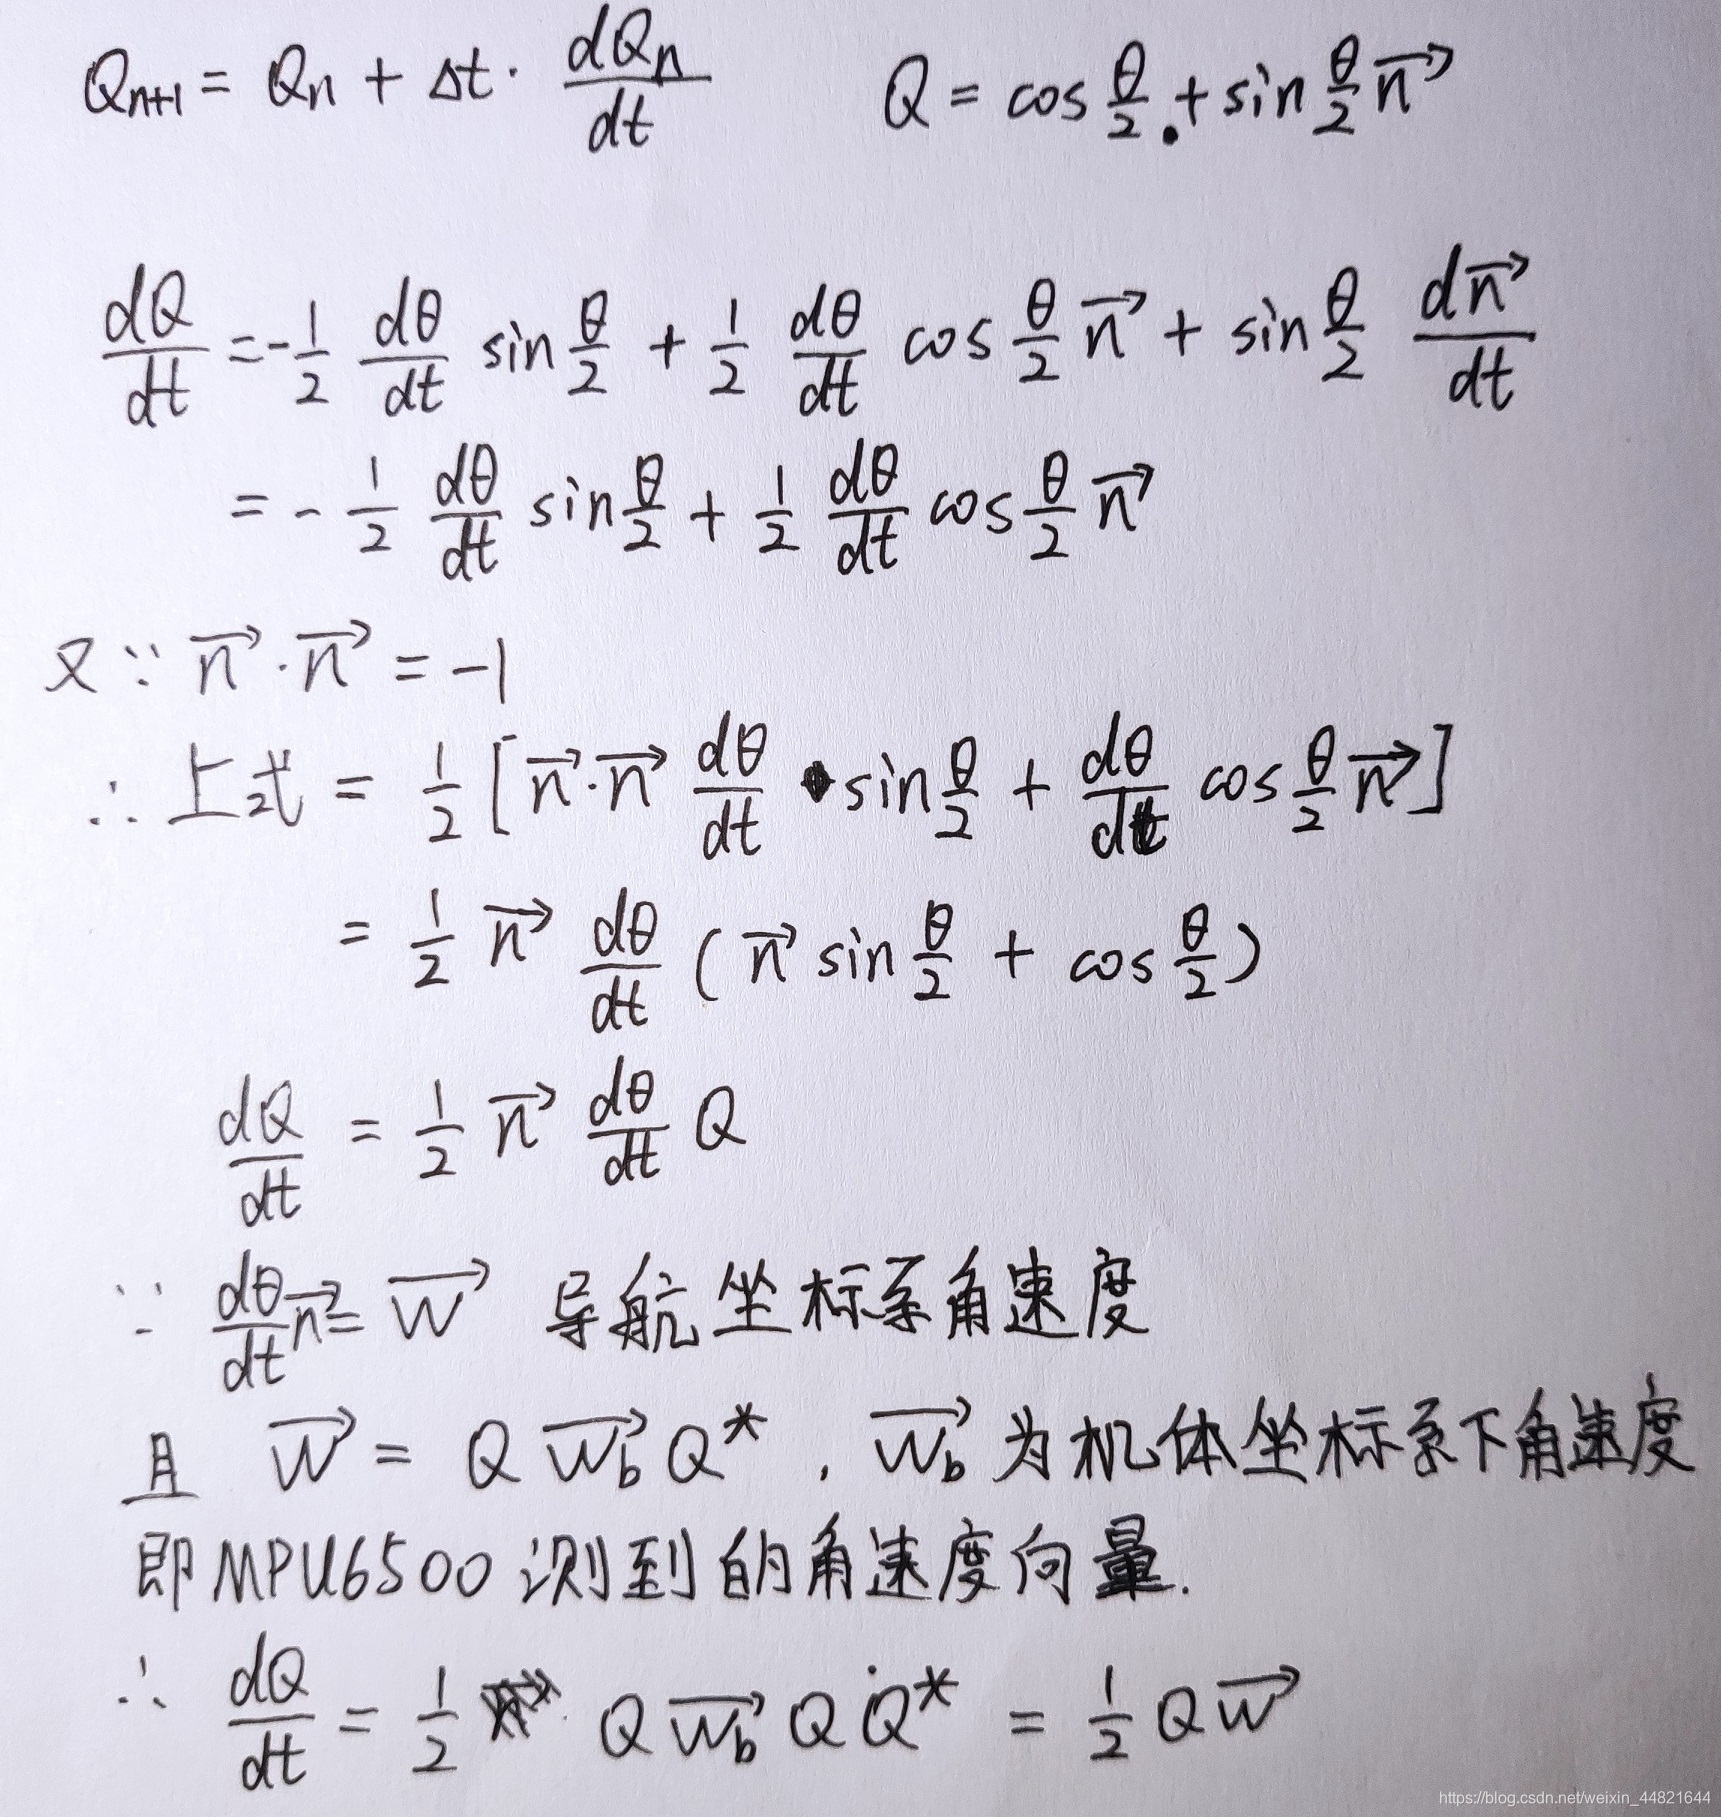 Qₙ₊₁ = Qₙ + Δt · dQₙ/dt    Q = cos θ/2 + sin θ/2 n⃗
dQ/dt = -1/2 dθ/dt sin θ/2 + 1/2 dθ/dt cos θ/2 n⃗ + sin θ/2 dn⃗/dt
= - 1/2 dθ/dt sin θ/2 + 1/2 dθ/dt cos θ/2 n⃗
又∵ n⃗ · n⃗ = -1
∴ 上式 = 1/2 [ n⃗ · n⃗ dθ/dt sin θ/2 + dθ/dt cos θ/2 n⃗ ]
= 1/2 n⃗ dθ/dt ( n⃗ sin θ/2 + cos θ/2 )
dQ/dt = 1/2 n⃗ dθ/dt Q
∵ dθ/dt n⃗ = w⃗ 导航坐标系角速度
且 w⃗ = Q w⃗_b Q*, w⃗_b 为机体坐标系下角速度
即MPU6500测到的角速度向量.
∴ dQ/dt = 1/2 Q w⃗_b Q Q* = 1/2 Q w⃗
https://blog.csdn.net/weixin_44821644